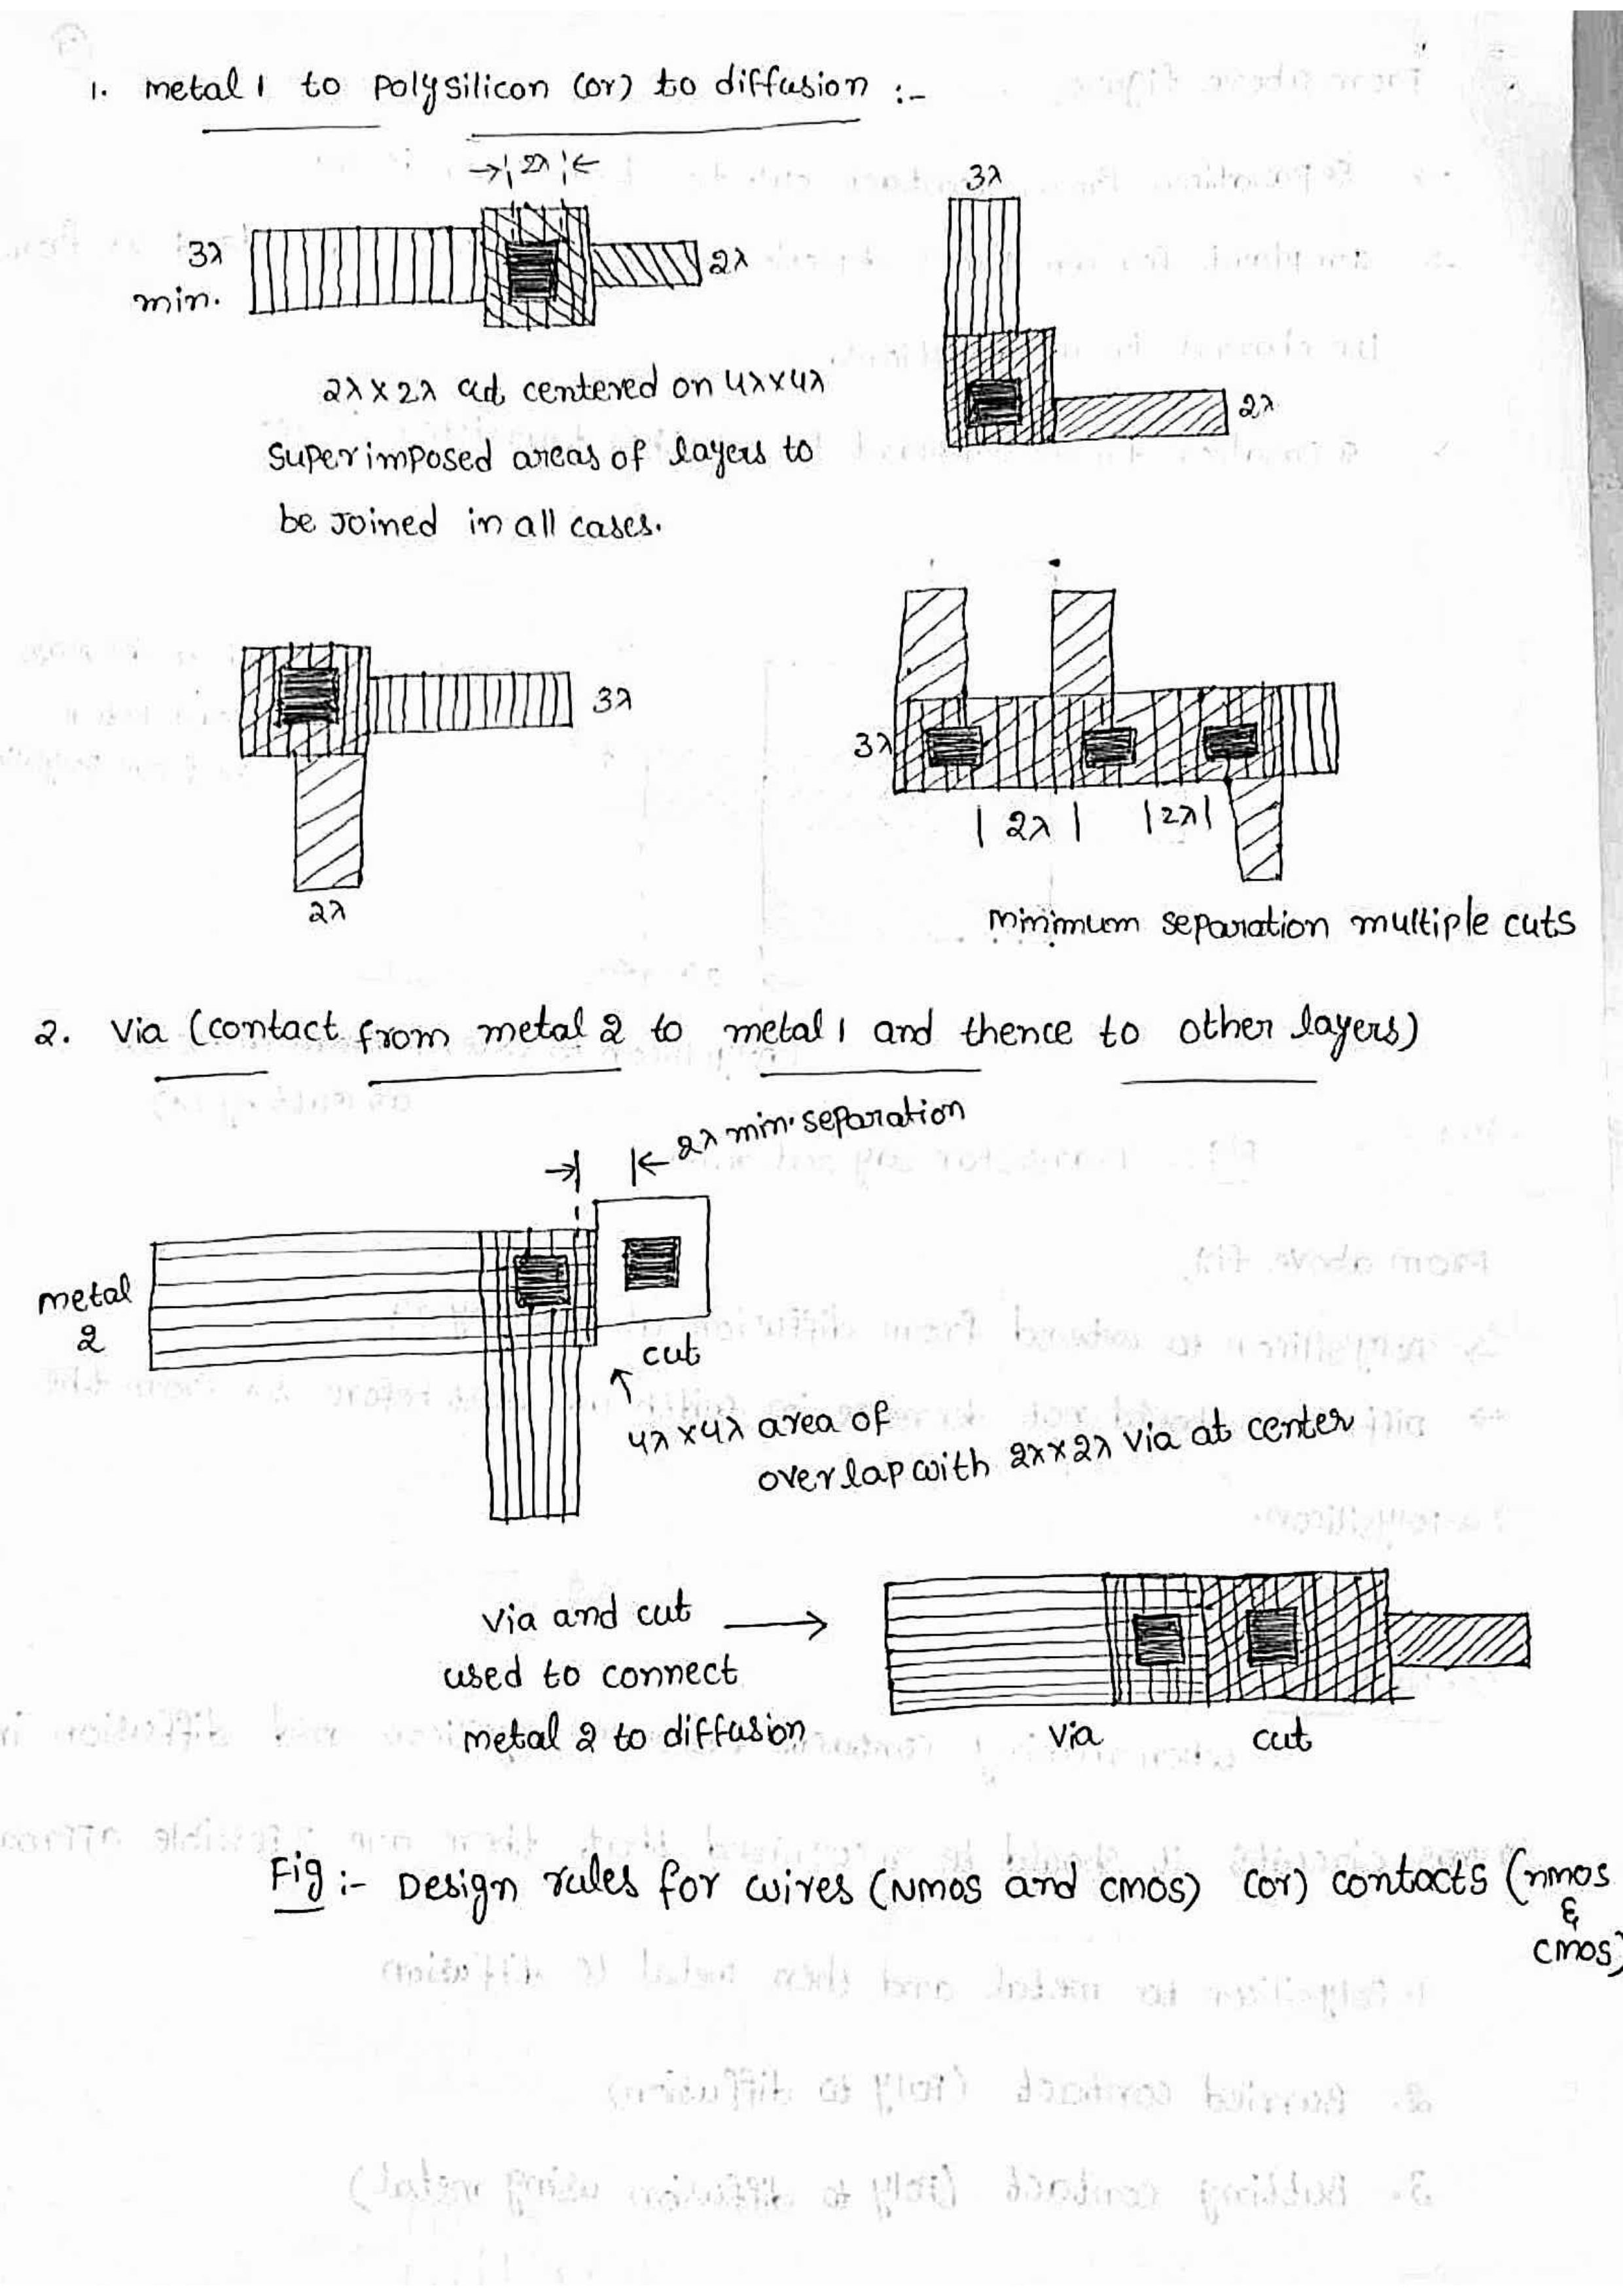 1. metal 1 to polysilicon (or) to diffusion :-
2λ
3λ
min.
2λ
3λ
2λ
2λ x 2λ cut centered on 4λ x 4λ
superimposed areas of layers to
be joined in all cases.
3λ
2λ
3λ
2λ
2λ
minimum separation multiple cuts
2. Via (contact from metal 2 to metal 1 and thence to other layers)
2λ min. separation
metal
2
cut
4λ x 4λ area of
overlap with 2λ x 2λ via at center
via and cut
used to connect
metal 2 to diffusion
via
cut
Fig :- Design rules for wires (NMOS and CMOS) (or) contacts (nmos
&
cmos)